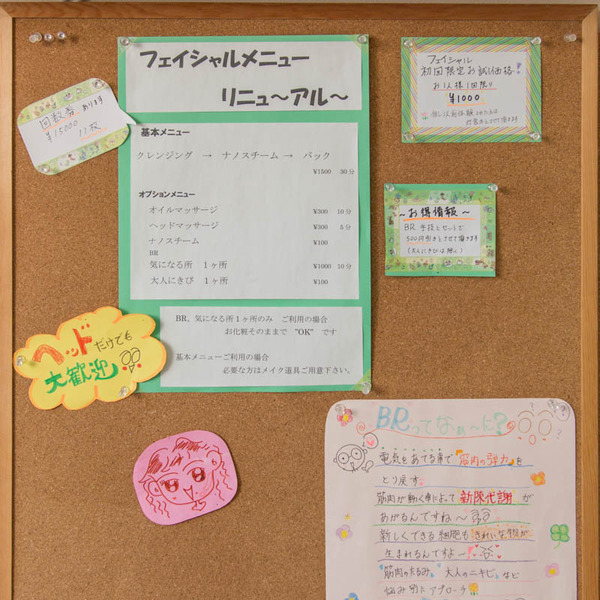 回数券あります
¥15000
11枚
フェイシャルメニュー
リニュ〜アル〜
基本メニュー
クレンジング → ナノスチーム → パック
¥1500 30分
オプションメニュー
オイルマッサージ ¥300 10分
ヘッドマッサージ ¥300 5分
ナノスチーム ¥100
BR
気になる所 1ヶ所 ¥1000 10分
大人にきび 1ヶ所 ¥100
BR、気になる所1ヶ所のみ ご利用の場合
お化粧そのままで "OK" です
基本メニューご利用の場合
必要な方はメイク道具ご用意下さい。
フェイシャル
初回限定お試し価格!
お1人様1回限り
¥1000
〜お得情報〜
BR 手技とセットで
500円引きとさせて頂きます
(大人にきびは除く)
ヘッドだけでも
大歓迎
BRってなぁ〜に?
電気をあてる事で 筋肉の弾力を
とり戻す。
筋肉が動く事によって 新陳代謝が
あがるんですね〜
新しくできる細胞も きれいな物が
生まれるんですよ〜
筋肉のたるみ、大人のニキビなど
悩み別にアプローチ